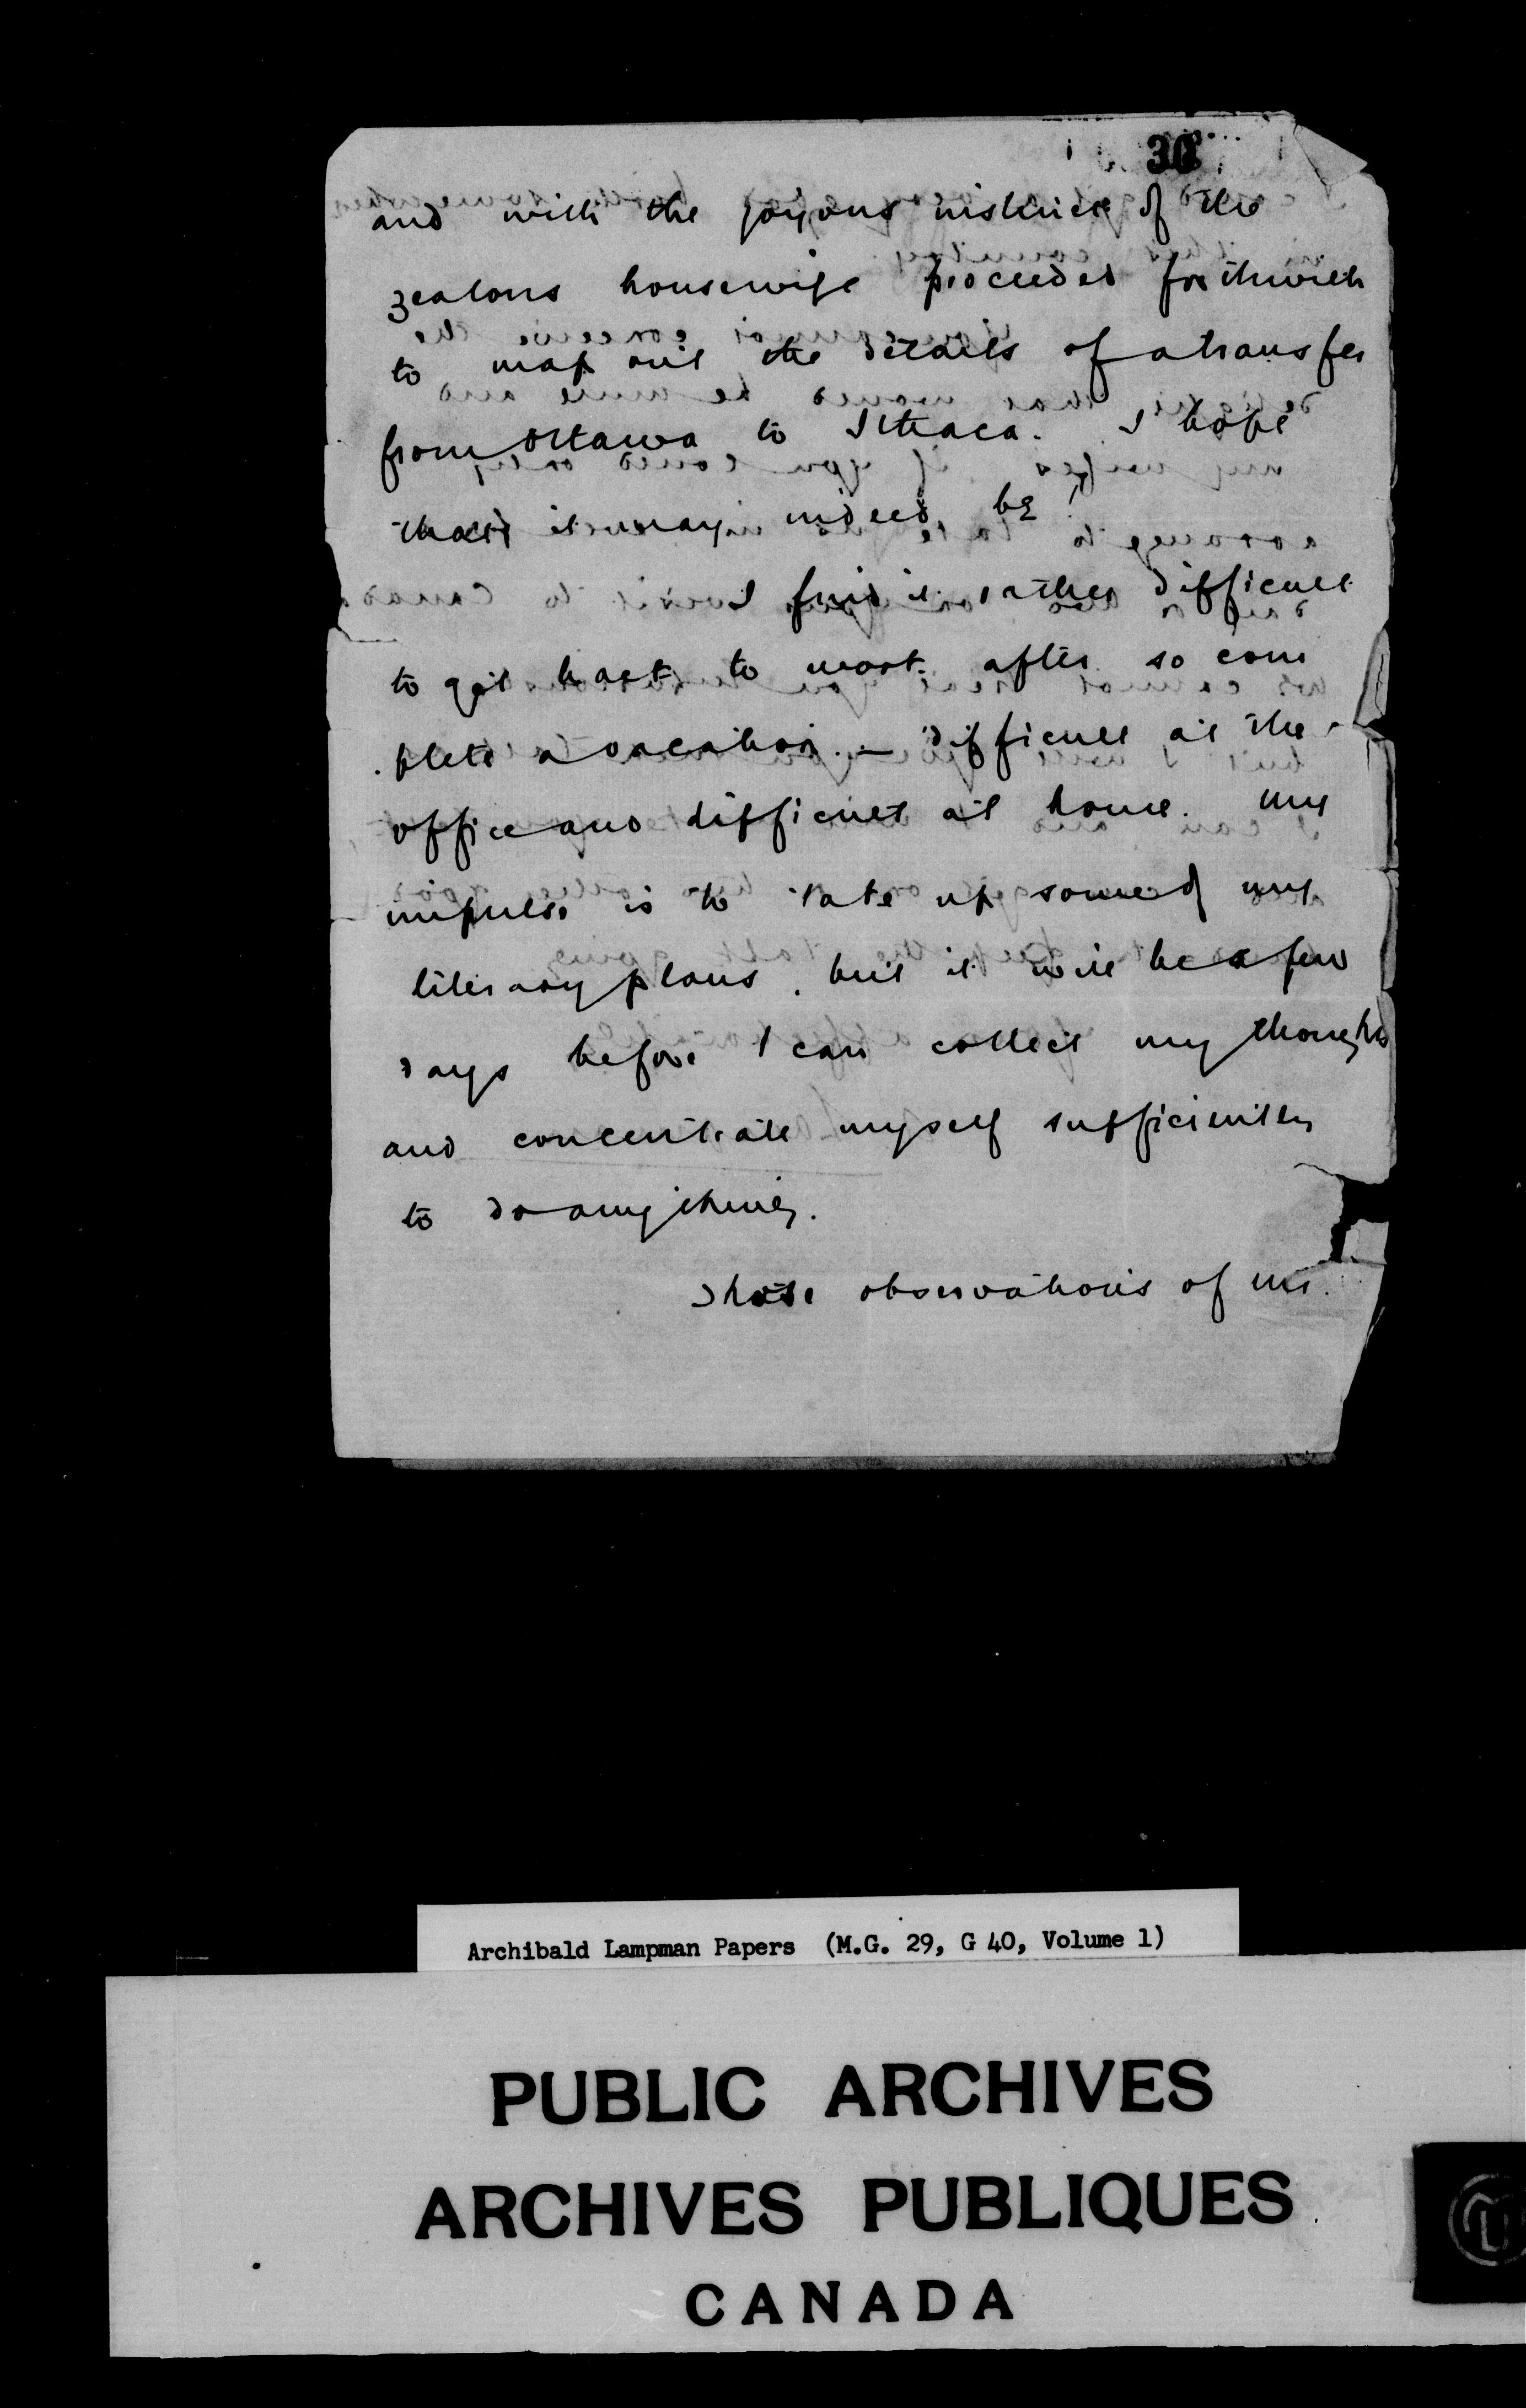 30
and with the joyous instinct of the
zealous housewife proceeded forthwith
to map out the details of a transfer
from Ottawa to Ithaca. I hope
that it may indeed be!
I find it rather difficult
to get back to work after so com
plete a vacation. — difficult at the
office and difficult at home. My
impulse is to take up some of my
literary plans, but it will be a few
days before I can collect my thoughts
and concentrate myself sufficiently
to do anything.
Those observations of mr.
Archibald Lampman Papers (M.G. 29, G 40, Volume 1)
PUBLIC ARCHIVES
ARCHIVES PUBLIQUES
CANADA